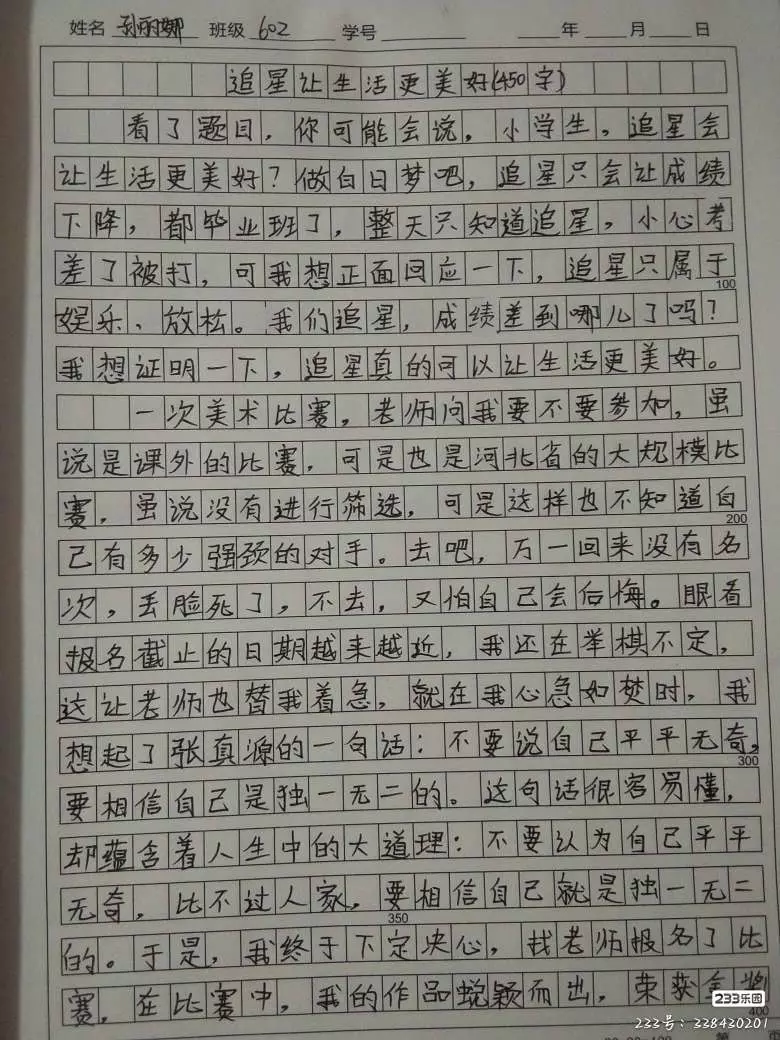 姓名 孙丽娜 班级 602 学号 年 月 日
追星让生活更美好(450字)
看了题目，你可能会说，小学生，追星会
让生活更美好？做白日梦吧，追星只会让成绩
下降，都毕业班了，整天只知道追星，小心考
差了被打，可我想正面回应一下，追星只属于
100
娱乐、放松。我们追星，成绩差到哪儿了吗？
我想证明一下，追星真的可以让生活更美好。
一次美术比赛，老师问我要不要参加，虽
说是课外的比赛，可是也是河北省的大规模比
赛，虽说没有进行筛选，可是这样也不知道自
200
己有多少强颈的对手。去吧，万一回来没有名
次，丢脸死了，不去，又怕自己会后悔。眼看
报名截止的日期越来越近，我还在举棋不定，
这让老师也替我着急，就在我心急如焚时，我
想起了张真源的一句话：不要说自己平平无奇，
300
要相信自己是独一无二的。这句话很容易懂，
却蕴含着人生中的大道理：不要认为自己平平
无奇，比不过人家，要相信自己就是独一无二
350
的。于是，我终于下定决心，找老师报名了比
赛，在比赛中，我的作品蜕颖而出，荣获金奖
400
233乐园
233号：338430201